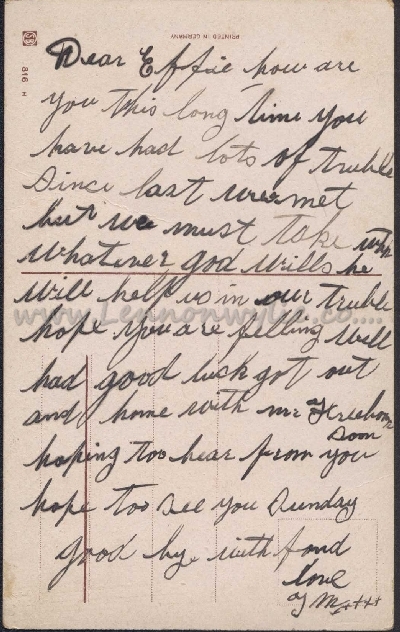 PRINTED IN GERMANY
816 H
Dear Effie how are
you this long time you
have had lots of truble
Since last we met
but we must take
whatever god wills he
will help us in our truble
www.Lennonwylie.co....
hope you are felling well
had good luck got out
and home with mr
Soon
hoping too hear from you
hope too see you Sunday
good by. with fond
love